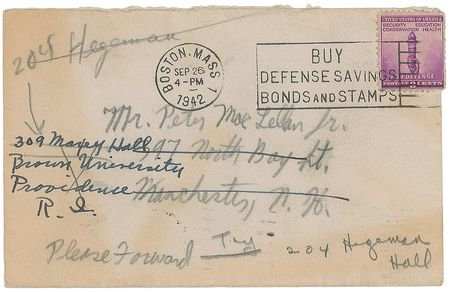 204 Hegeman
BOSTON, MASS 1
SEP 26
4-PM
1942
BUY
DEFENSE SAVINGS
BONDS AND STAMPS
UNITED STATES OF AMERICA
SECURITY EDUCATION
CONSERVATION HEALTH
FOR DEFENSE
POSTAGE 3 CENTS
Mr. Peter Mac Lellan Jr.
597 North Bay St.
Manchester, N. H.
309 Maxcy Hall
Brown University
Providence
R. I.
Please Forward
Try 204 Hegeman
Hall